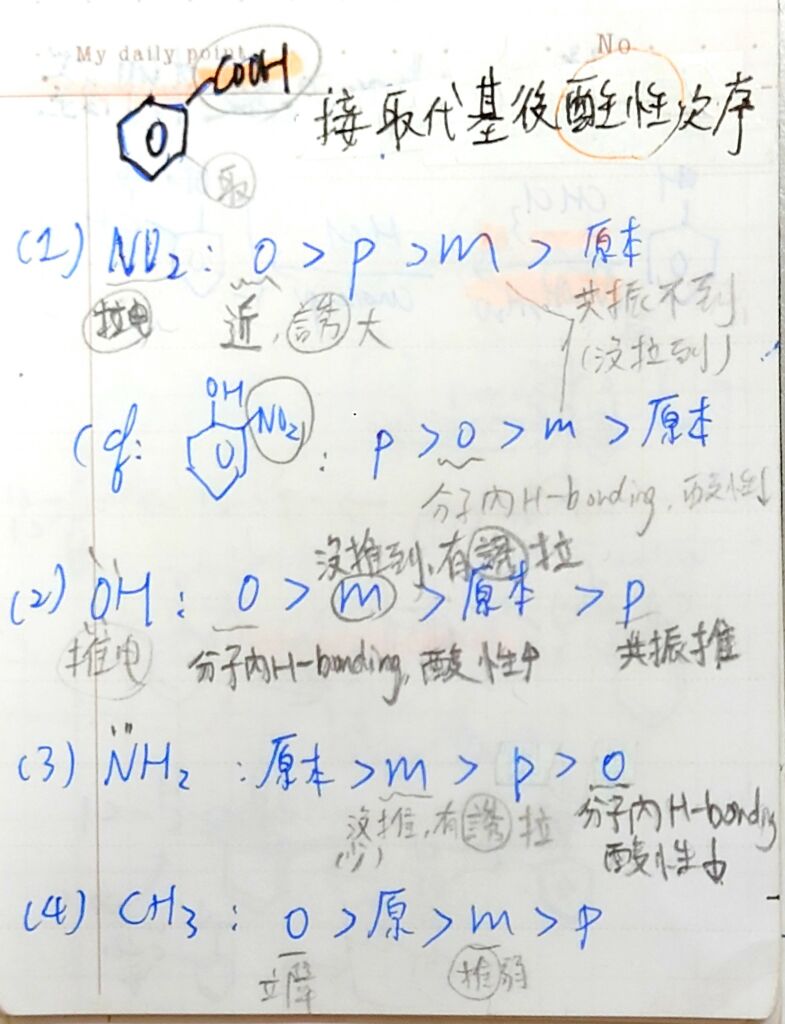 My daily point
No
COOH
接取代基後酸性次序
取
(1) NO2: o > p > m > 原本
拉电 近, 誘大 共振不到
(沒拉到)
OH
NO2
(cf: : p > o > m > 原本
分子內H-bonding, 酸性↓
沒推到, 有誘拉
(2) ÖH : o > m > 原本 > p
推电 分子內H-bonding, 酸性↑ 共振推
(3) N̈H2 : 原本 > m > p > o
沒推, 有誘拉 分子內H-bonding
(少) 酸性↓
(4) CH3 : o > 原 > m > p
立障 推弱